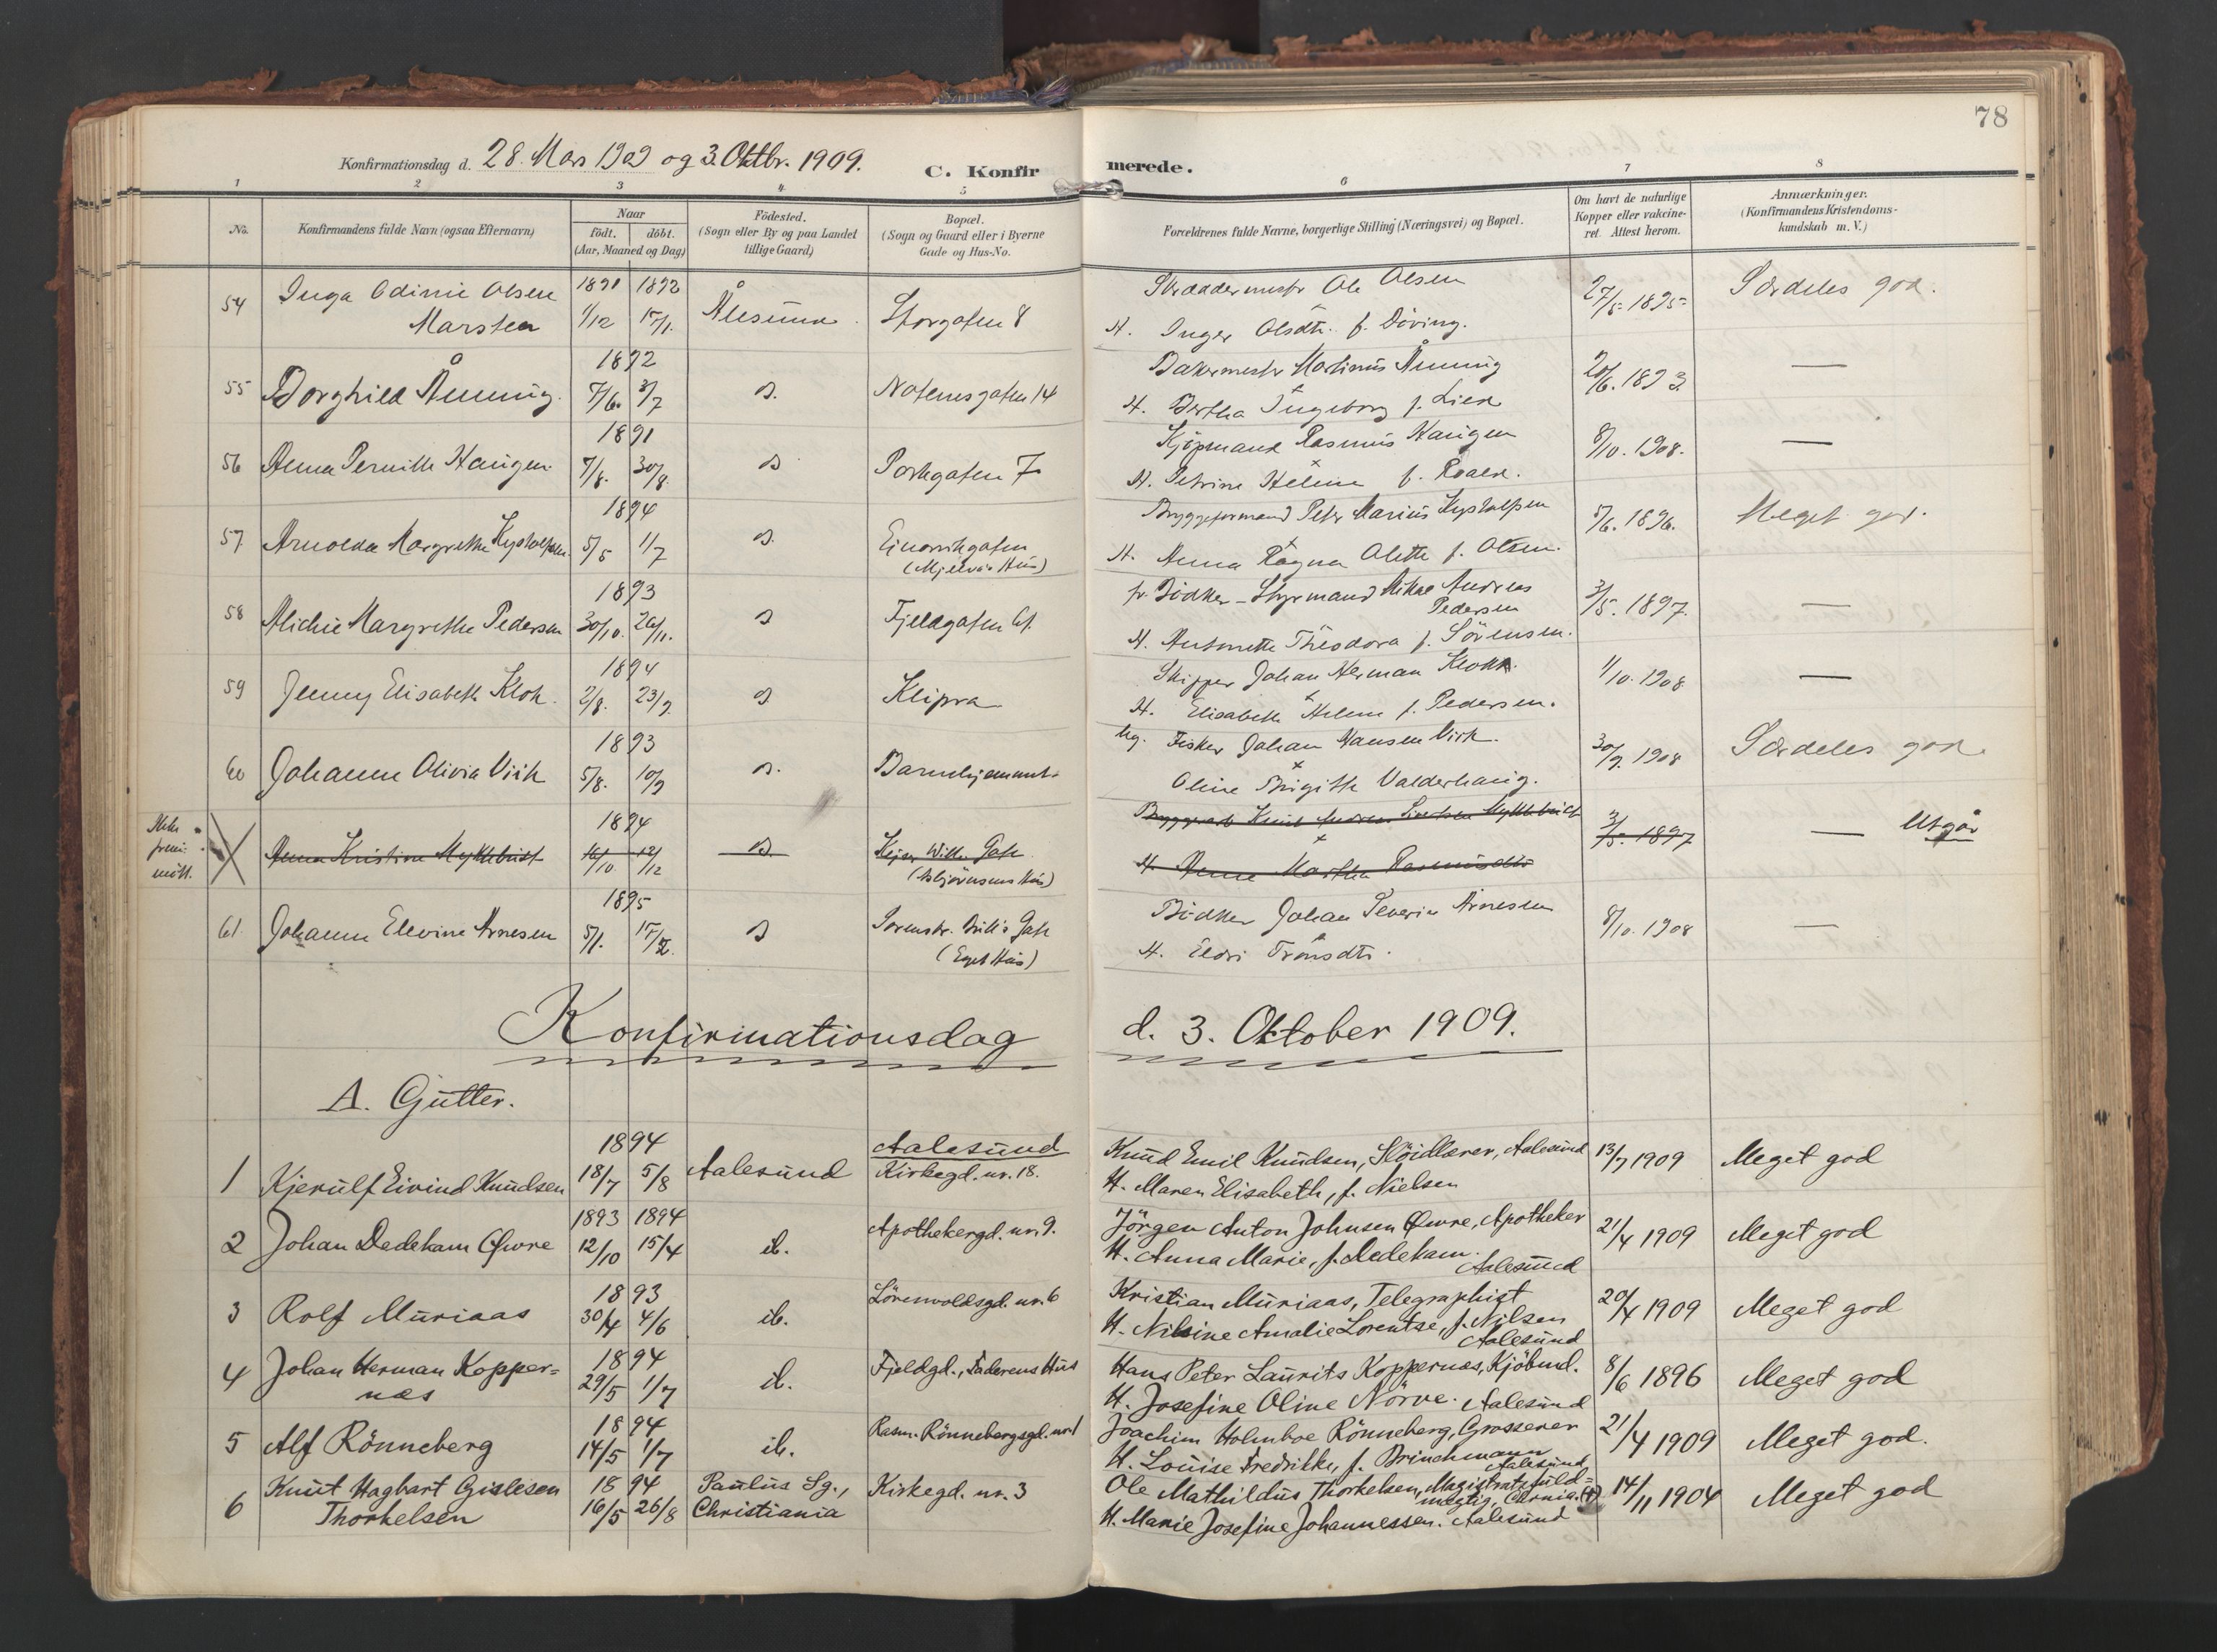 78
Konfirmationsdag d. 28. Mars 1909 og 3. Oktbr. 1909.
C. Konfirmerede.
1 2 3 4 5 6 7 8
No.
Konfirmandens fulde Navn (ogsaa Efternavn)
Naar
født. døbt.
(Aar, Maaned og Dag)
Födested.
(Sogn eller By og paa Landet
tillige Gaard)
Bopæl.
(Sogn og Gaard eller i Byerne
Gade og Hus-No.
Forældrenes fulde Navne, borgerlige Stilling (Næringsvei) og Bopæl.
Om havt de naturlige
Kopper eller vakcine-
ret. Attest herom.
Anmærkninger.
(Konfirmandens Kristendoms-
kundskab m. V.)
54 Inga Odinie Olsen
Marsten
1891 1892
1/12 15/1.
Ålesund. Storgaten 8
Skræddermestr Ole Olsen
H. Inger Olsdtr. f. Döving.
27/5. 1895 Særdeles god.
55 Borghild Ånning.
1892
7/6. 3/7
do. Notenesgaten 14
Bakermestr Martinus Ånning
H. Bertha Ingeborg f. Lied
20/6. 1893. —
56 Anna Pernille Haugen.
1891
7/8. 30/8.
do Parkgaten 7
Kjöpmand Rasmus Haugen
H. Petrine Heline f. Roald.
8/10. 1908. —
57 Arnolda Margrethe Kystolfsen.
1894
5/5 1/7
do.
Bryggeformand Peter Marius Kystolfsen
H. Anna Ragna Olette f. Olsen.
5/6. 1896. Meget god.
58 Margrethe Pedersen
1893
30/10. 26/11.
do Fjeldgaten 61.
Bödker - Styrmand Mikal Andreas
Pedersen
H. Antonette Theodora f. Sörensen.
3/5. 1897. —
59 Jenny Elisabeth Klok.
1894
2/8. 23/9.
do Klipra
Skipper Johan Herman Klokk.
H. Elisabeth Helene f. Pedersen.
1/10. 1908 —
60 Johanne Olivia Vik
1893
5/8. 10/9
do. Barnehjemmet.
Ug. Fisker Johan Hansen Vik.
Oline Brigitte Valderhaug.
30/9. 1908 Særdeles god
Ikke
frem-
mött.
Anna Kristine Myklebust
1894
16/10 12/12
do. Keiser Wilh. Gate
(Asbjörnsens Hus)
Knut Andreas Myklebust
H. Anne Martha Rasmusdtr
3/5. 1897 — Utgår
61. Johanne Elevine Arnesen
1895
5/1. 17/2.
do
Gate
(Eget Hus)
Bödker Johan Severin Arnesen
H. Eldri Tronsdtr.
8/10. 1908 —
Konfirmationsdag d. 3. Oktober 1909.
A. Gutter.
1 Kjerulf Eivind Knudsen
1894
18/7 5/8
Aalesund
Aalesund
Kirkegd. nr. 18.
Knud Emil Knudsen, Slöidlærer, Aalesund
H. Maren Elisabeth, f. Nielsen
13/7 1909 Meget god
2 Johan Dedekam Øwre
1893 1894
12/10 15/4
ib. Apothekergd. nr. 9.
Jörgen Anton Johnsen Øwre, Apotheker
H. Anna Marie, f. Dedekam.
Aalesund
21/4 1909 Meget god
3 Rolf Muriaas
1893
30/4 4/6
ib. Lörenvoldsgd. nr. 6
Kristian Muriaas, Telegraphist
H. Nilsine Amalie Lorentse, f. Nilsen
Aalesund
20/4 1909 Meget god
4 Johan Herman Kopper=
næs
1894
29/5 1/7
ib. Fjeldgd., Faderens Hus
Hans Peter Laurits Koppernæs, Kjöbmd.
H. Josefine Oline Nörve. Aalesund
8/6 1896 Meget god
5 Alf Rönneberg
1894
14/5 1/7
ib. Rasm. Rönnebergsgd. nr 1
Joachim Holmboe Rönneberg, Grosserer
H. Louise Fredrikke, f. Brinchmann
Aalesund
21/4 1909 Meget god.
6 Knut Hagbart Gislesen
Thorkelsen
1894
16/5 26/8
Paulus Sg.,
Christiania
Kirkegd. nr. 3
Ole Mathildus Thorkelsen, Magistratsfuld=
mægtig, Chrnia. (†)
H. Marie Josefine Johannessen. Aalesund
14/11 1904 Meget god